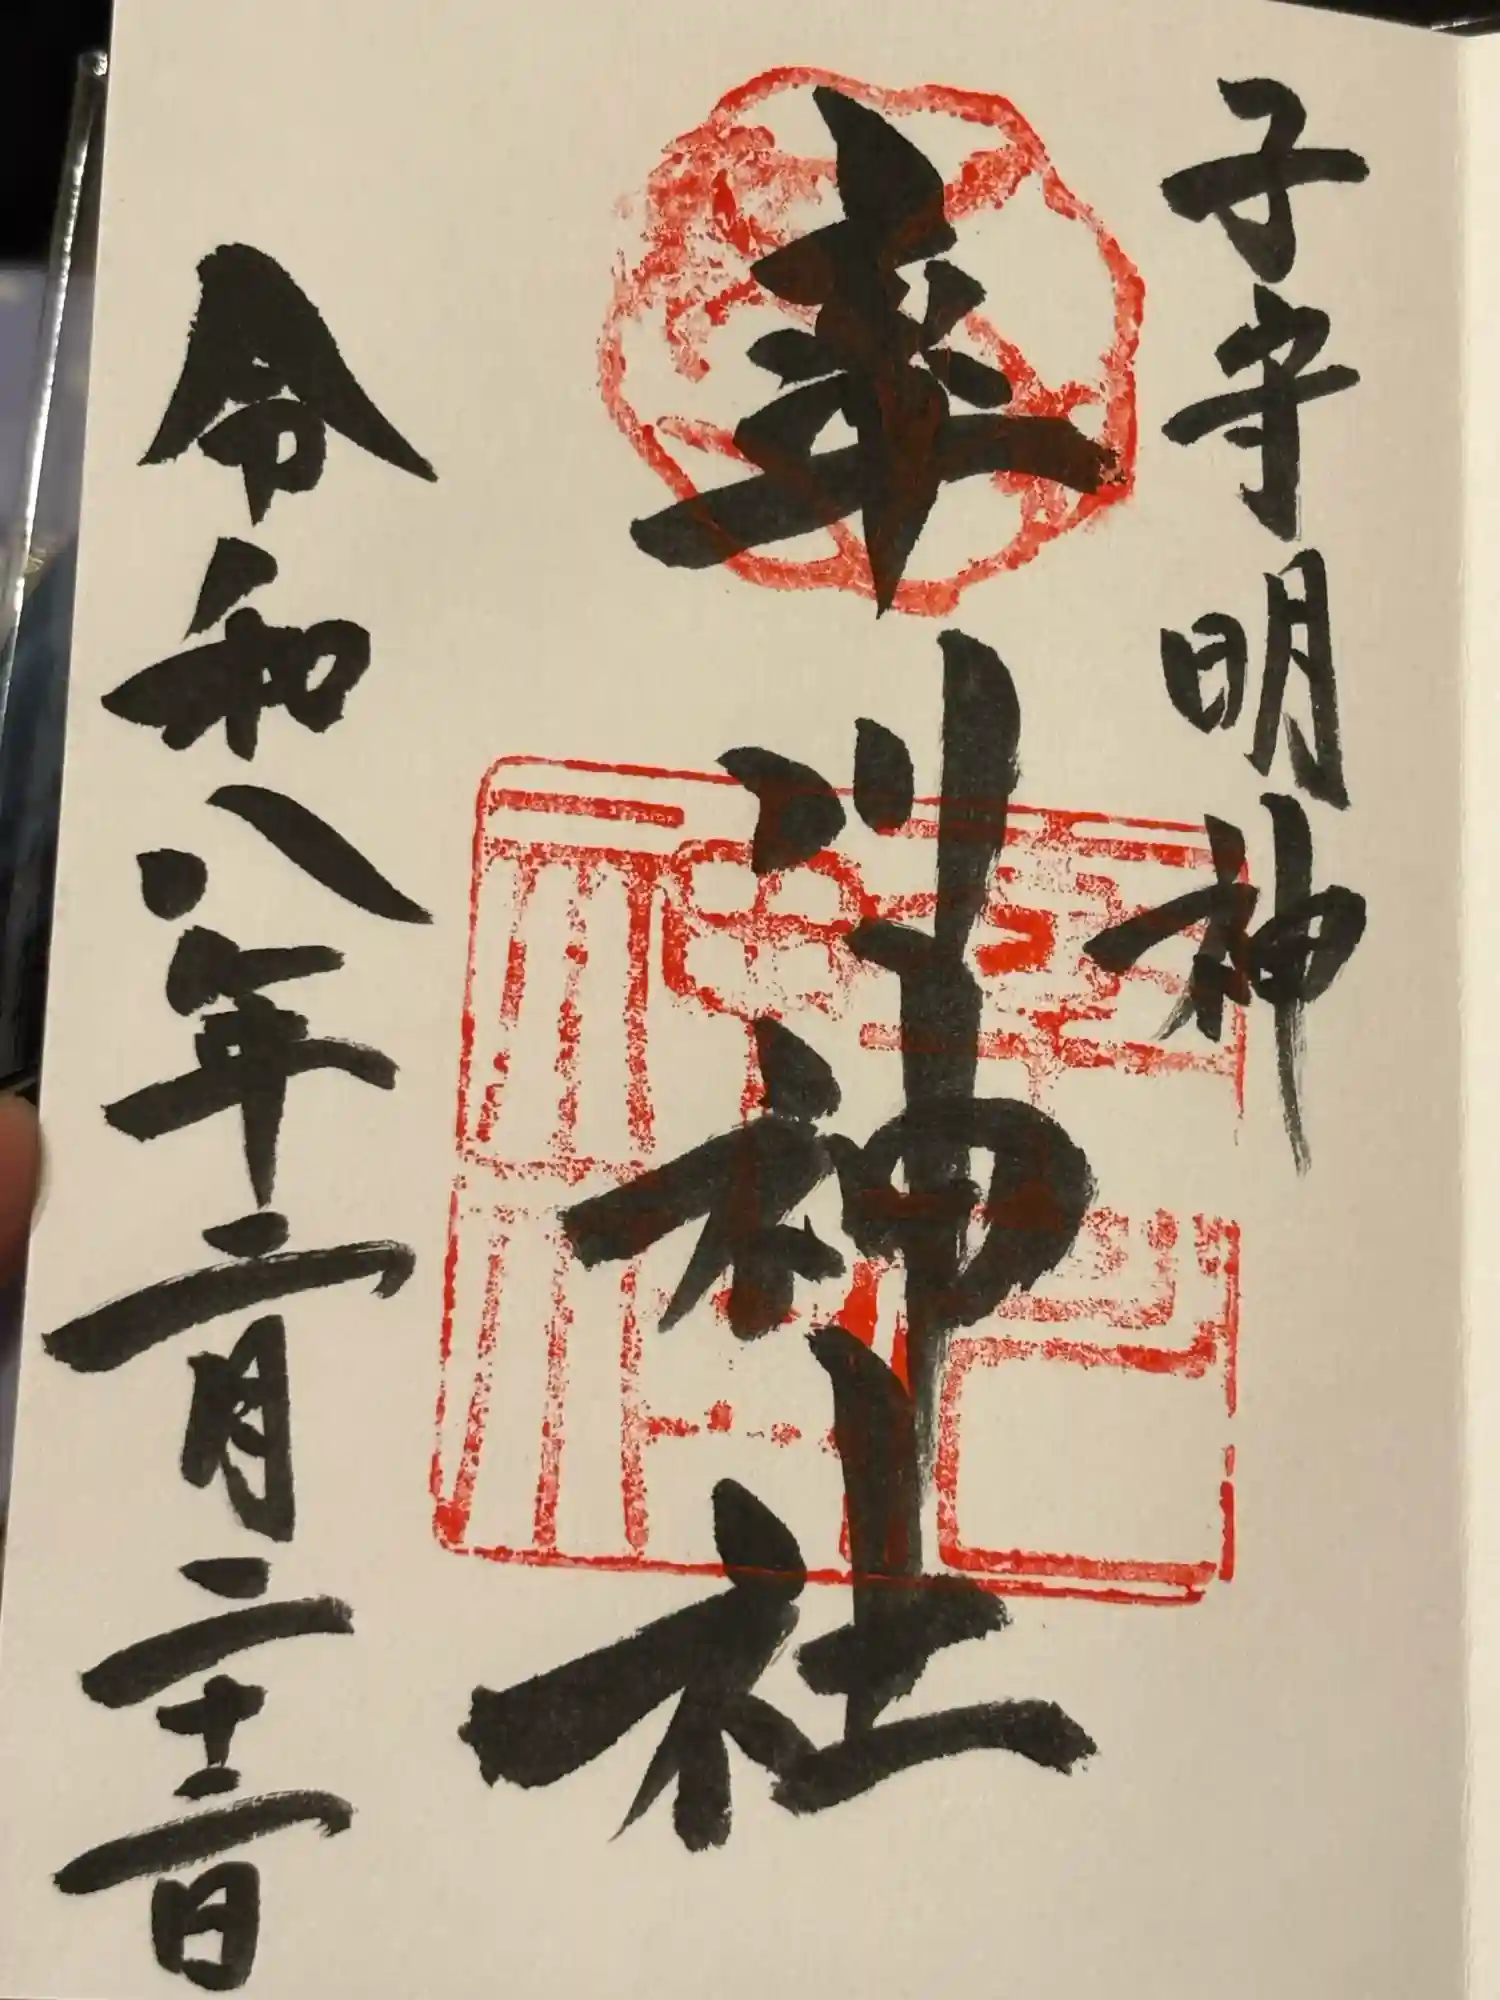 子守明神
率川神社
令和八年二月二十二日